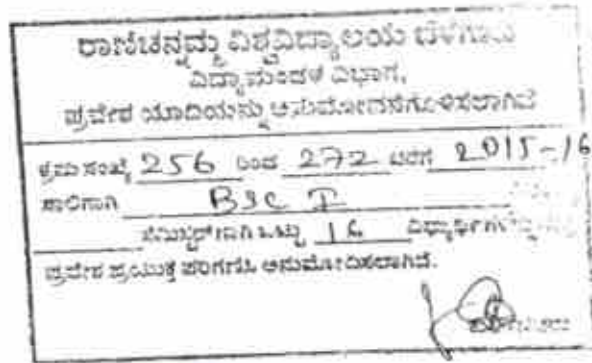 ರಾಣಿಚನ್ನಮ್ಮ ವಿಶ್ವವಿದ್ಯಾಲಯ ಬೆಳಗಾವಿ
ವಿದ್ಯಾಮಂಡಳ ವಿಭಾಗ,
ಪ್ರವೇಶ ಯಾದಿಯನ್ನು ಅನುಮೋದನೆಗೊಳಿಸಲಾಗಿದೆ
ಕ್ರಮ ಸಂಖ್ಯೆ 256 ರಿಂದ 272 ವರೆಗೆ 2015-16
ಸಾಲಿಗಾಗಿ BSC I
ಸೆಮಿಸ್ಟರ್‌ಗಾಗಿ ಒಟ್ಟು 16
ಪ್ರವೇಶ ಪ್ರಯುಕ್ತ ಪರಿಗಣಿಸಿ ಅನುಮೋದಿಸಲಾಗಿದೆ.